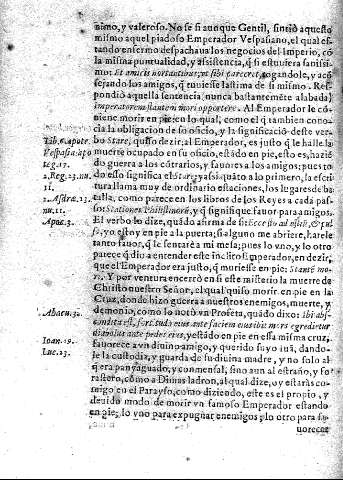 nimo, y valeroso. No se si aunque Gentil, sintio aquesto
mismo aquel piadoso Emperador Vespasiano, el qual es-
tando enfermo despachaua los negocios del Imperio, cõ
la misma puntualidad, y assistencia, q̃ si estuuiera sanissi-
mo: Et amicis hortantibus, ut sibi parceret, rogandole, y acõ
sejandole los amigos, q̃ tuuiesse lastima de si mismo. Res-
pondiò aquella sentencia, nunca bastantemẽte alabada:
imperatorem stantem mori oportere. Al Emperador le cõ
uiene morir en pie: en lo qual, como el q̃ tambien cono-
cia la obligacion de su oficio, y la significaciõ deste ver-
bo Stare, quiso dezir, al Emperador, es justo q̃ le halle la
muerte ocupado en su oficio, estado en pie, esto es, haziẽ
do guerra a los cõtrarios, y fauor a los amigos; pues to
do esso significa el Stare; y assi quãto a lo primero, la escri
tura llama muy de ordinario estaciones, los lugares de ba-
talla, como parece en los libros de los Reyes a cada pas-
so: Stationes Philistinorũ, y q̃ signifique fauor para amigos.
El verbo lo dize, quãdo afirma de si: Ecce sto ad ostiũ, & pul
so, yo estoy en pie a la puerta; si alguno me abriere, harele
tanto fauor, q̃ le sentarè a mi mesa; pues lo vno, y lo otro
parece q̃ dio a entender este inclito Emperador, en dezir,
que el Emperador era justo, q̃ muriesse en pie: Stantẽ mo-
ri. Y por ventura encerrò en si este misterio la muerte de
Christo nuestro Señor, el qual quiso morir en pie en la
Cruz, donde hizo guerra a nuestros enemigos, muerte, y
demonio, como lo notò vn Profeta, quãdo dixo: Ibi abs-
condita est fortitudo eius ante faciem eius ibit mors egredietur
diabolus ante pedes eius, y estãdo en pie en essa misma cruz,
fauorece a vn diuino amigo, y querido suyo iuã, dando-
le la custodia, y guarda de su diuina madre, y no solo al
q̃ era paniaguado, y comensal, sino aun al estraño, y fo-
rastero, como a Dimas ladron, al qual dize, oy estaràs co-
migo en el Parayso, como diziendo, este es el propio, y
deuido modo de morir vn famoso Emperador estando
en pie; lo vno para expugnar enemigos, y lo otro para fa-
uorecer
Lib. 6. apote.
Vespasia. apo
teg. 17.
2. Reg. 23. nu.
11.
Apoc. 3.
Abacu. 3.
Ioan. 19.
Luc. 23.